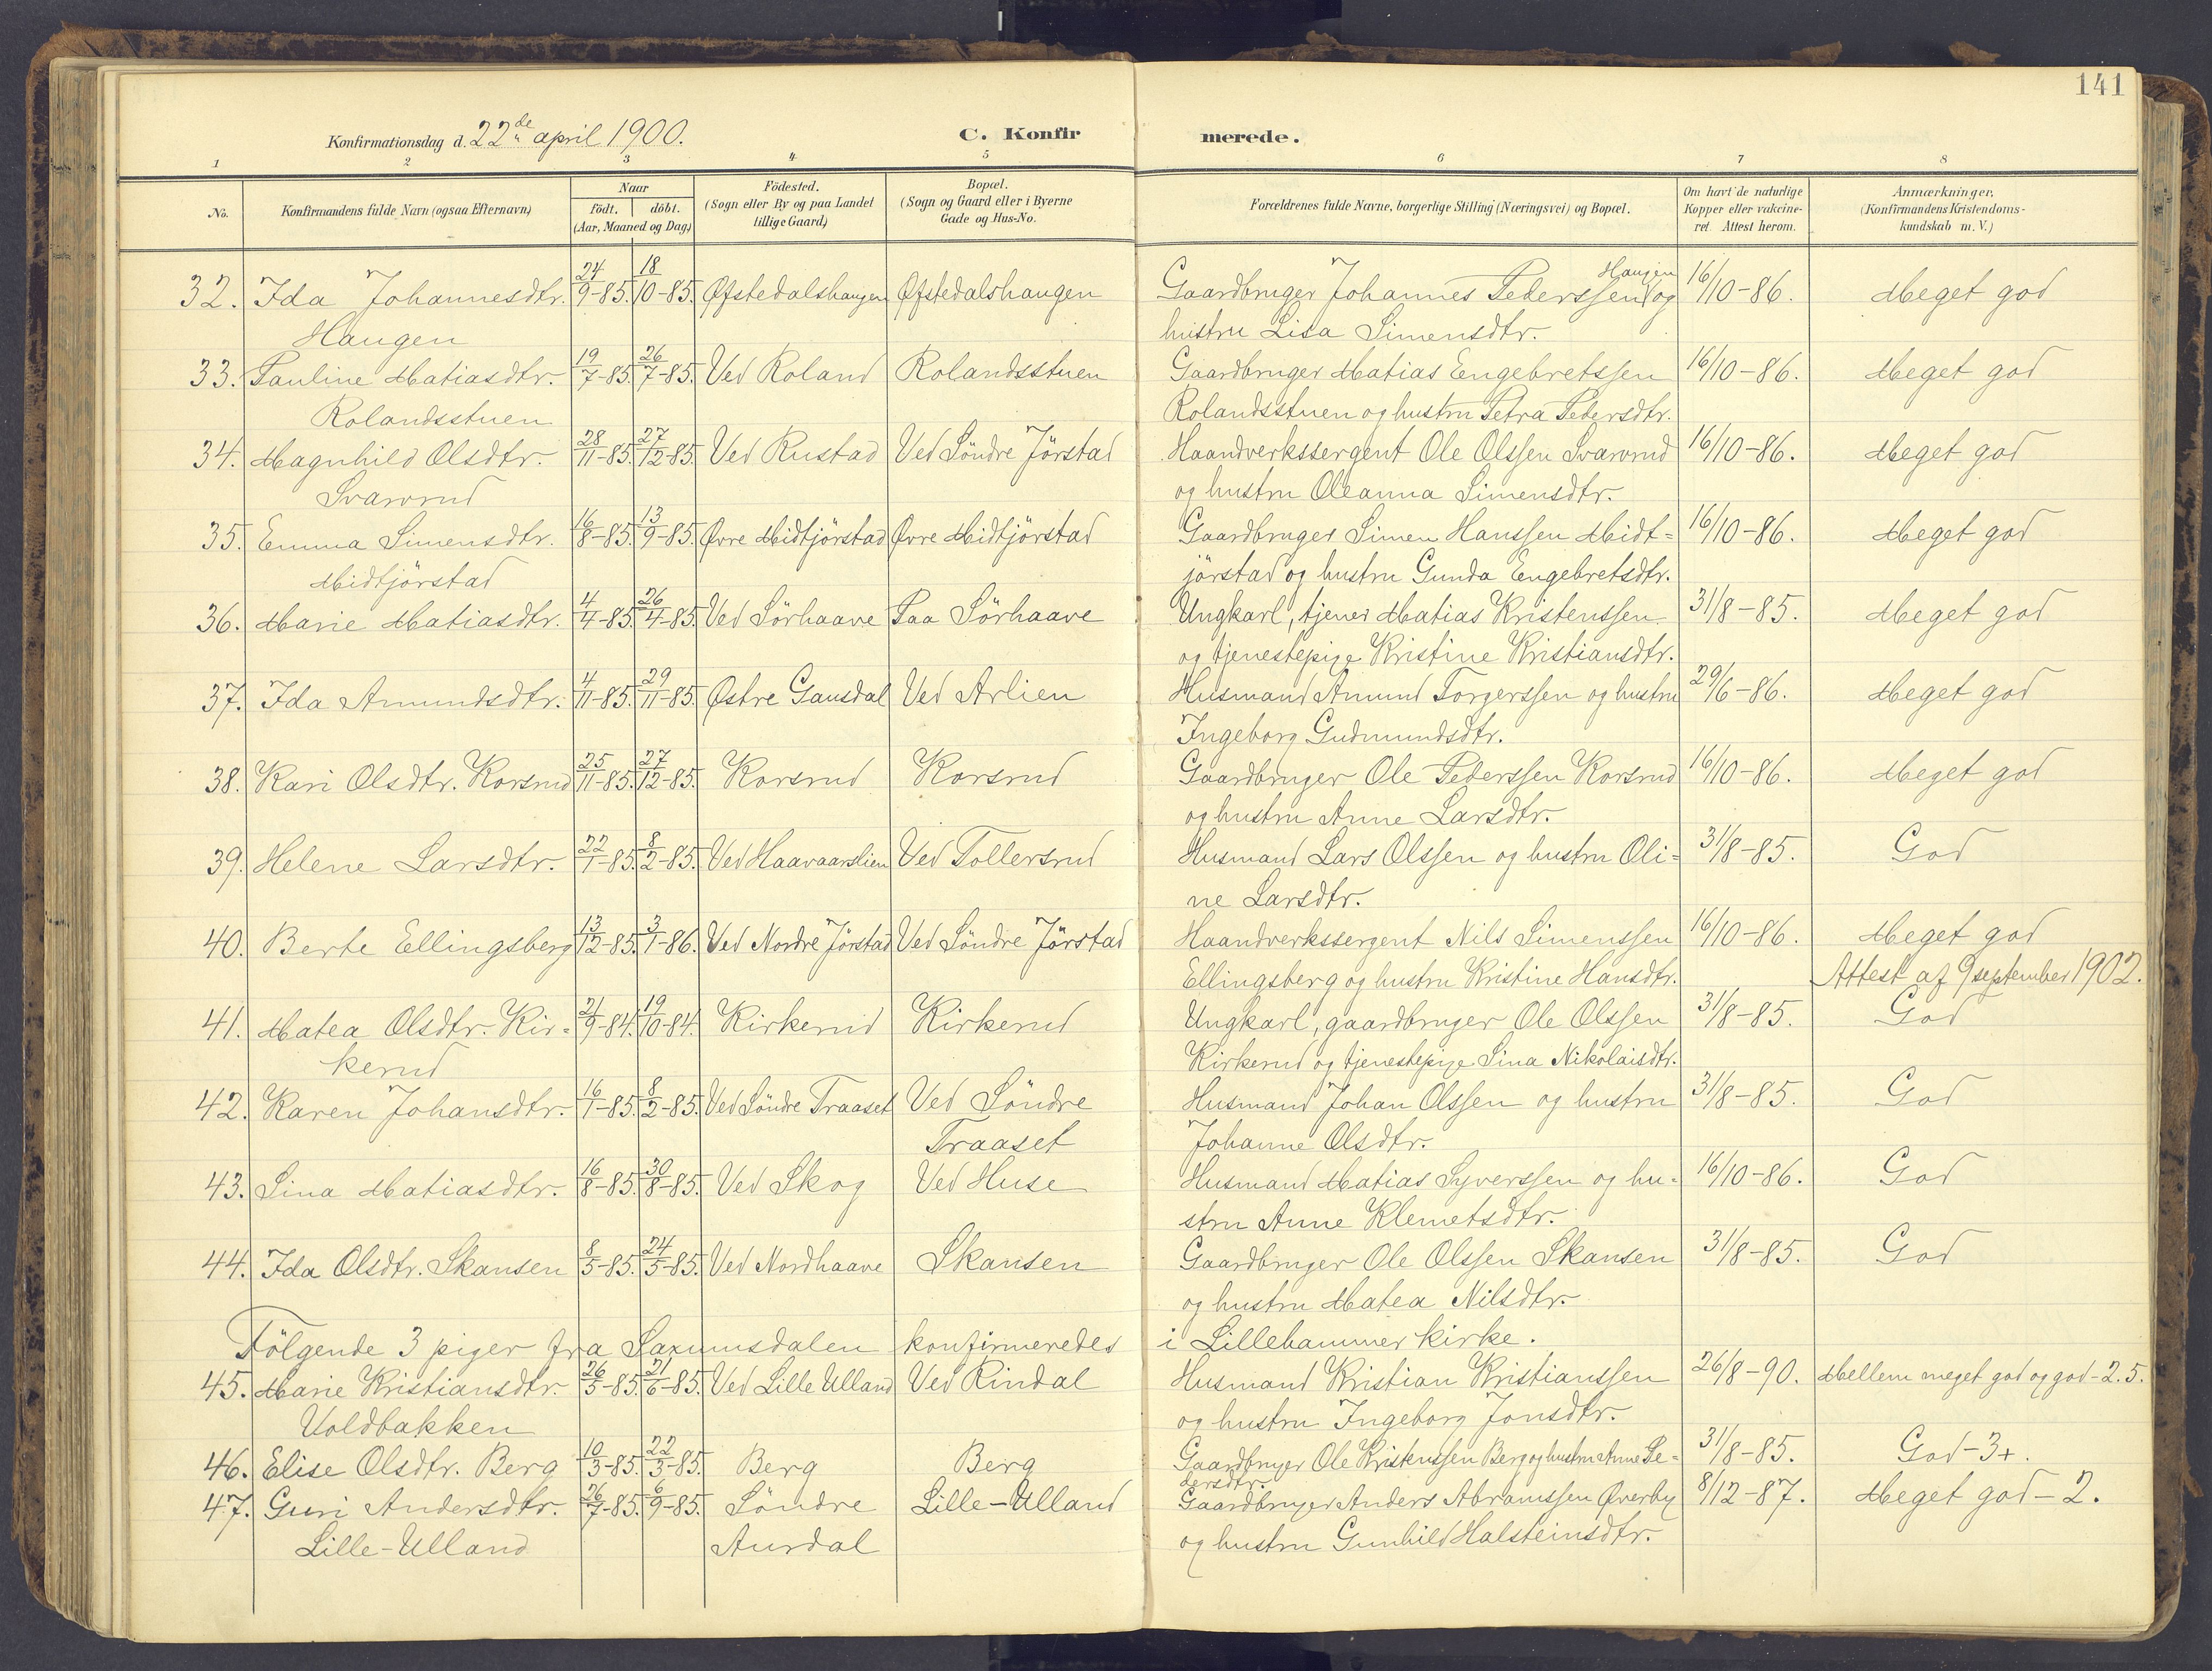 141
Konfirmationsdag d. 22de april 1900.
C. Konfirmerede.
1 2 3 4 5 6 7 8
No.
Konfirmandens fulde Navn (ogsaa Efternavn)
Naar
født. døbt.
(Aar, Maaned og Dag)
Fødested.
(Sogn eller By og paa Landet
tillige Gaard)
Bopæl.
(Sogn og Gaard eller i Byerne
Gade og Hus-No.
Forældrenes fulde Navne, borgerlige Stilling (Næringsvei) og Bopæl.
Om havt de naturlige
Kopper eller vakcine-
ret. Attest herom.
Anmærkninger,
(Konfirmandens Kristendoms-
kundskab m. V.)
32. Ida Johannesdtr. 24/9-85. 18/10-85. Øfstedalshaugen Øfstedalshaugen Gaardbruger Johannes Pederssen Haugen og 16/10-86. Meget god
Haugen hustru Lisa Simensdtr.
33. Pauline Matiasdtr. 19/7-85. 26/7-85. Ved Roland Rolandsstuen Gaardbruger Matias Engebretssen 16/10-86. Meget god
Rolandsstuen Rolandsstuen og hustru Petra Pedersdtr.
34. Magnhild Olsdtr. 28/11-85. 27/12-85. Ved Rustad Ved Söndre Jörstad Haandverkssergent Ole Olssen Svarvrud 16/10-86. Meget god
Svarvrud og hustru Oleanna Simensdtr.
35. Emma Simensdtr. 16/8-85. 13/9-85. Øvre Midtjörstad Øvre Midtjörstad Gaardbruger Simen Hanssen Midt= 16/10-86. Meget god
Midtjörstad jörstad og hustru Gunda Engebretsdtr.
36. Marie Matiasdtr. 4/4-85. 26/4-85. Ved Sörhaave Paa Sörhaave Ungkarl, tjener Matias Kristenssen 31/8-85. Meget god
og tjenestepige Kristine Kristiansdtr.
37. Ida Amundsdtr. 4/11-85. 29/11-85. Østre Gausdal Ved Arlien Husmand Amund Torgerssen og hustru 29/6-86. Meget god
Ingeborg Gudmundsdtr.
38. Kari Olsdtr. Korsrud 25/11-85. 27/12-85. Korsrud Korsrud Gaardbruger Ole Pederssen Korsrud 16/10-86. Meget god
og hustru Anne Larsdtr.
39. Helene Larsdtr. 22/1-85. 8/2-85. Ved Haavaarslien Ved Tollersrud Husmand Lars Olssen og hustru Oli= 31/8-85. God
ne Larsdtr.
40. Berte Ellingsberg 13/12-85. 3/1-86. Ved Nordre Jörstad Ved Söndre Jörstad Haandverkssergent Nils Simenssen 16/10-86. Meget god
Ellingsberg og hustru Kristine Hansdtr. Attest af 9 september 1902.
41. Matea Olsdtr. Kir= 21/9-84. 19/10-84. Kirkerud Kirkerud Ungkarl, gaardbruger Ole Olssen 31/8-85. God
kerud Kirkerud og tjenestepige Lina Nikolaisdtr.
42. Karen Johansdtr. 16/1-85. 8/2-85. Ved Söndre Traaset Ved Söndre Husmand Johan Olssen og hustru 31/8-85. God
Traaset Johanne Olsdtr.
43. Lina Matiasdtr. 16/8-85. 30/8-85. Ved Skog Ved Huse Husmand Matias Syverssen og hu= 16/10-86. God
stru Anne Klemetsdtr.
44. Ida Olsdtr. Skansen 8/5-85. 24/5-85. Ved Nordhaave Skansen Gaardbruger Ole Olssen Skansen 31/8-85. God
og hustru Matea Nilsdtr.
Følgende 3 piger fra Saxumsdalen konfirmeredes i Lillehammer kirke.
45. Marie Kristiansdtr. 26/5-85. 21/6-85. Ved Lille Ulland Ved Rindal Husmand Kristian Kristianssen 26/8-90. Mellem meget god og god-2.5.
Voldbakken og hustru Ingeborg Jonsdtr.
46. Elise Olsdtr. Berg 10/3-85. 22/3-85. Berg Berg Gaardbruger Ole Kristenssen Berg og hustru Anne Pe= 31/8-85. God-3+.
dersdtr.
47. Guri Andersdtr. 26/7-85. 6/9-85. Söndre Lille-Ulland Gaardbruger Anders Abramssen Øverby 8/12-87. Meget god-2.
Lille-Ulland Aurdal og hustru Gunhild Halsteinsdtr.